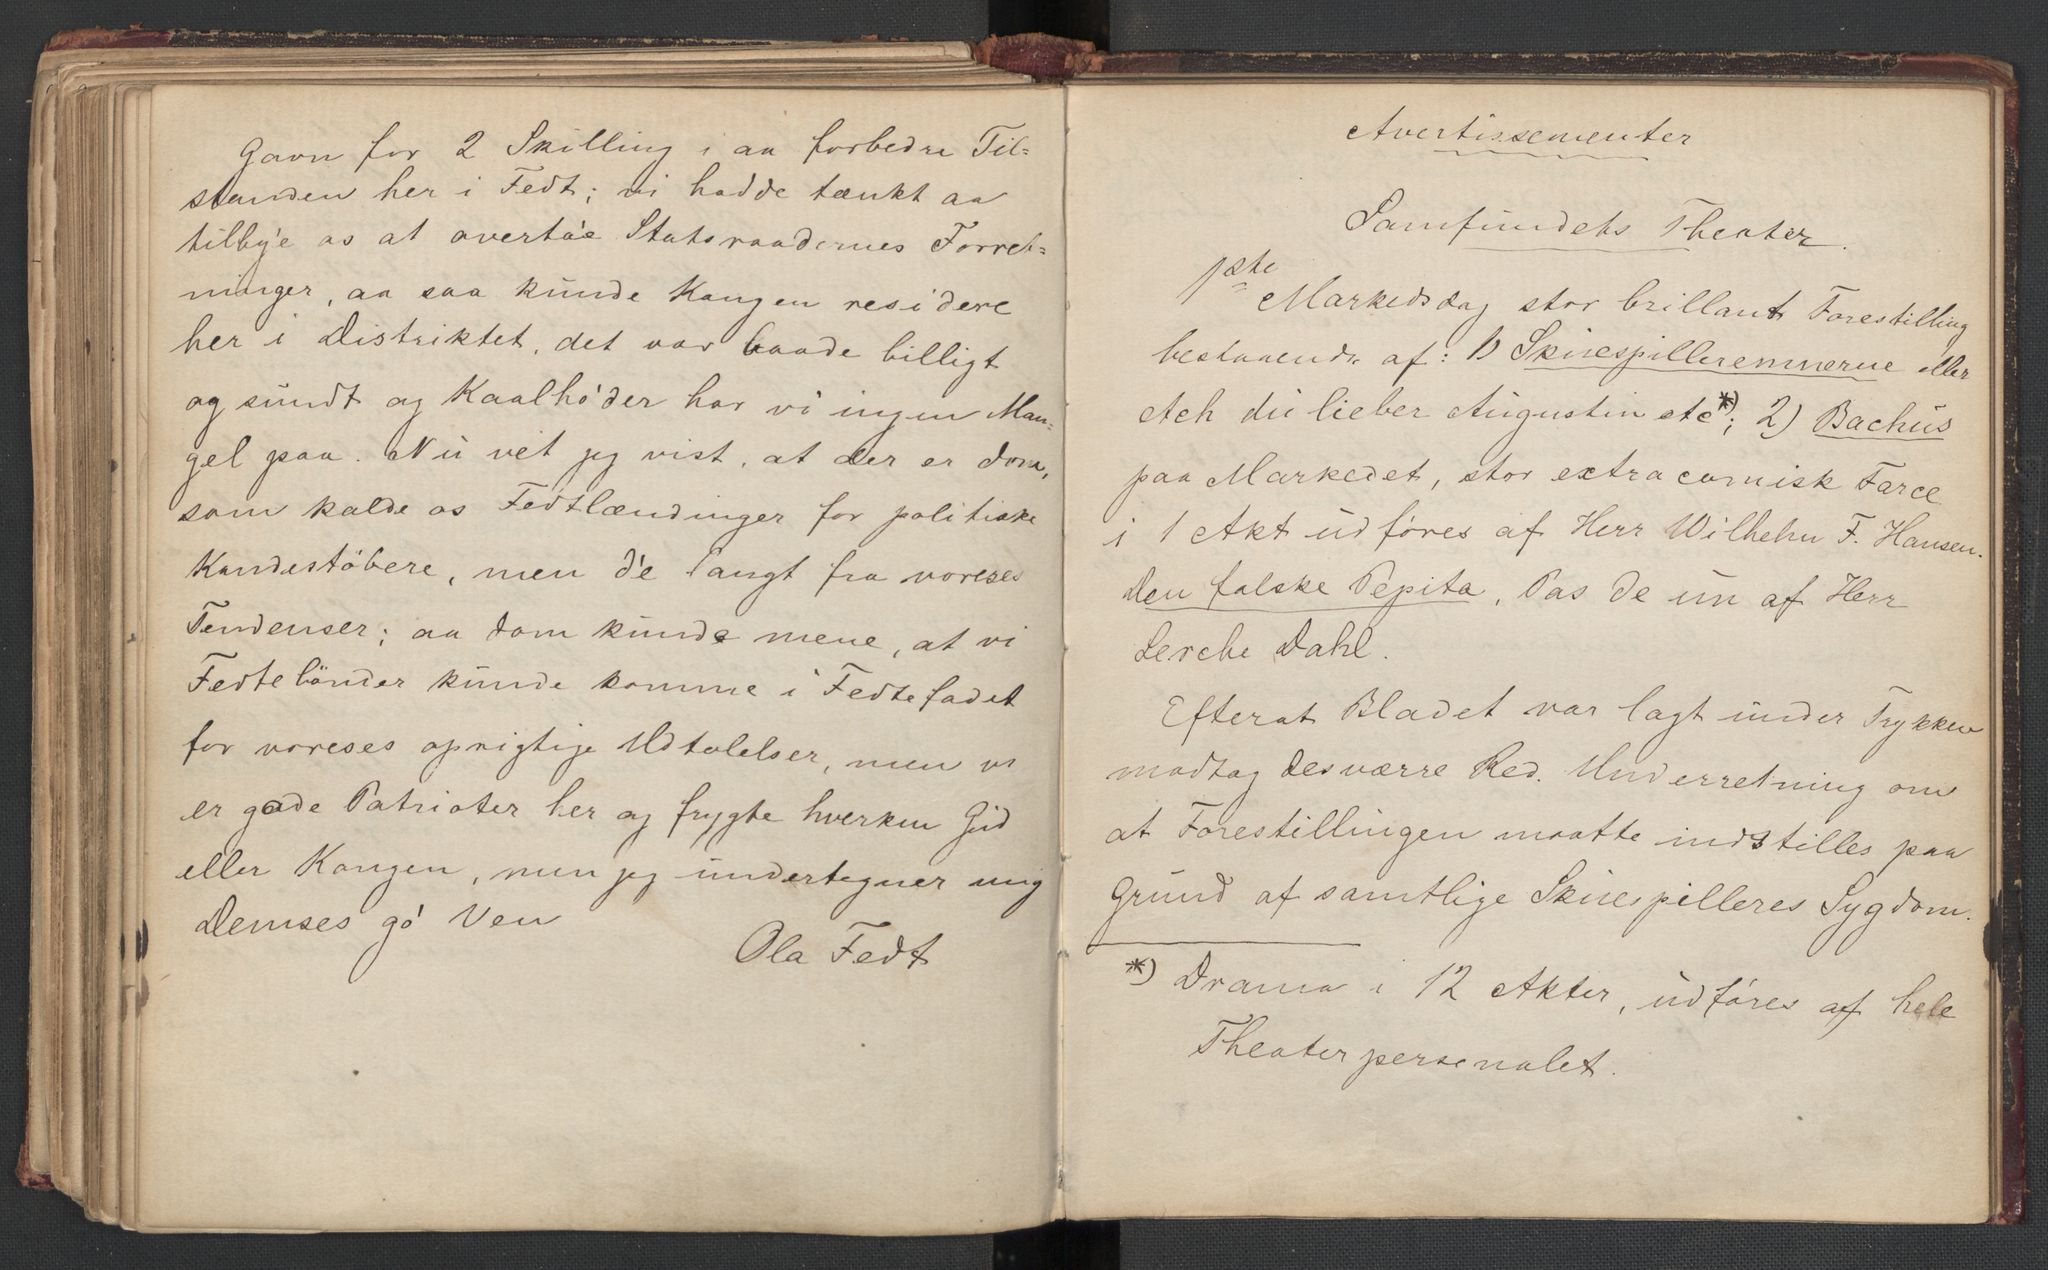 Gavn for 2 Skilling i aa forbedre Til=
standen her i Fedt; vi hadde tænkt aa
tilby'e os at overta'e Statsraadernes Forret=
ninger, aa saa kunde Kongen residere
her i Distriktet, det var baade billigt
og sundt og Kaalhø'der har vi ingen Man=
gel paa. Nu vet jeg vist, at der er dom,
som kalde os Fedtlændinger for politiske
Kandestøbere, men d'e langt fra voreses
Tendenser; aa dom kunde mene, at vi
Fedtebønder kunde komme i Fedtefadet
for voreses oprigtige Udtalelser, men vi
er gode Patrioter her og frygte hverken Gud
eller Kongen, men jeg undertegner mig
Demses go' Ven
Ola Fedt
Avertissementer
Samfundets Theater.
1ste Markedsdag stor brillant Forestilling
bestaaende af: 1) Skuespilleremnerne eller
Ach du lieber Augustin etc*); 2) Bachus
paa Markedet, stor extra comisk Farce
i 1 Akt udføres af Herr Wilhelm F. Hansen.
Den falske Pepita, Pas de un af Herr
Lerche Dahl.
Efterat Bladet var lagt under Trykken
modtog desværre Red. Underretning om
at Forestillingen maatte indstilles paa
Grund af samtlige Skuespilleres Sygdom.
*) Drama i 12 Akter, udføres af hele
Theaterpersonalet.